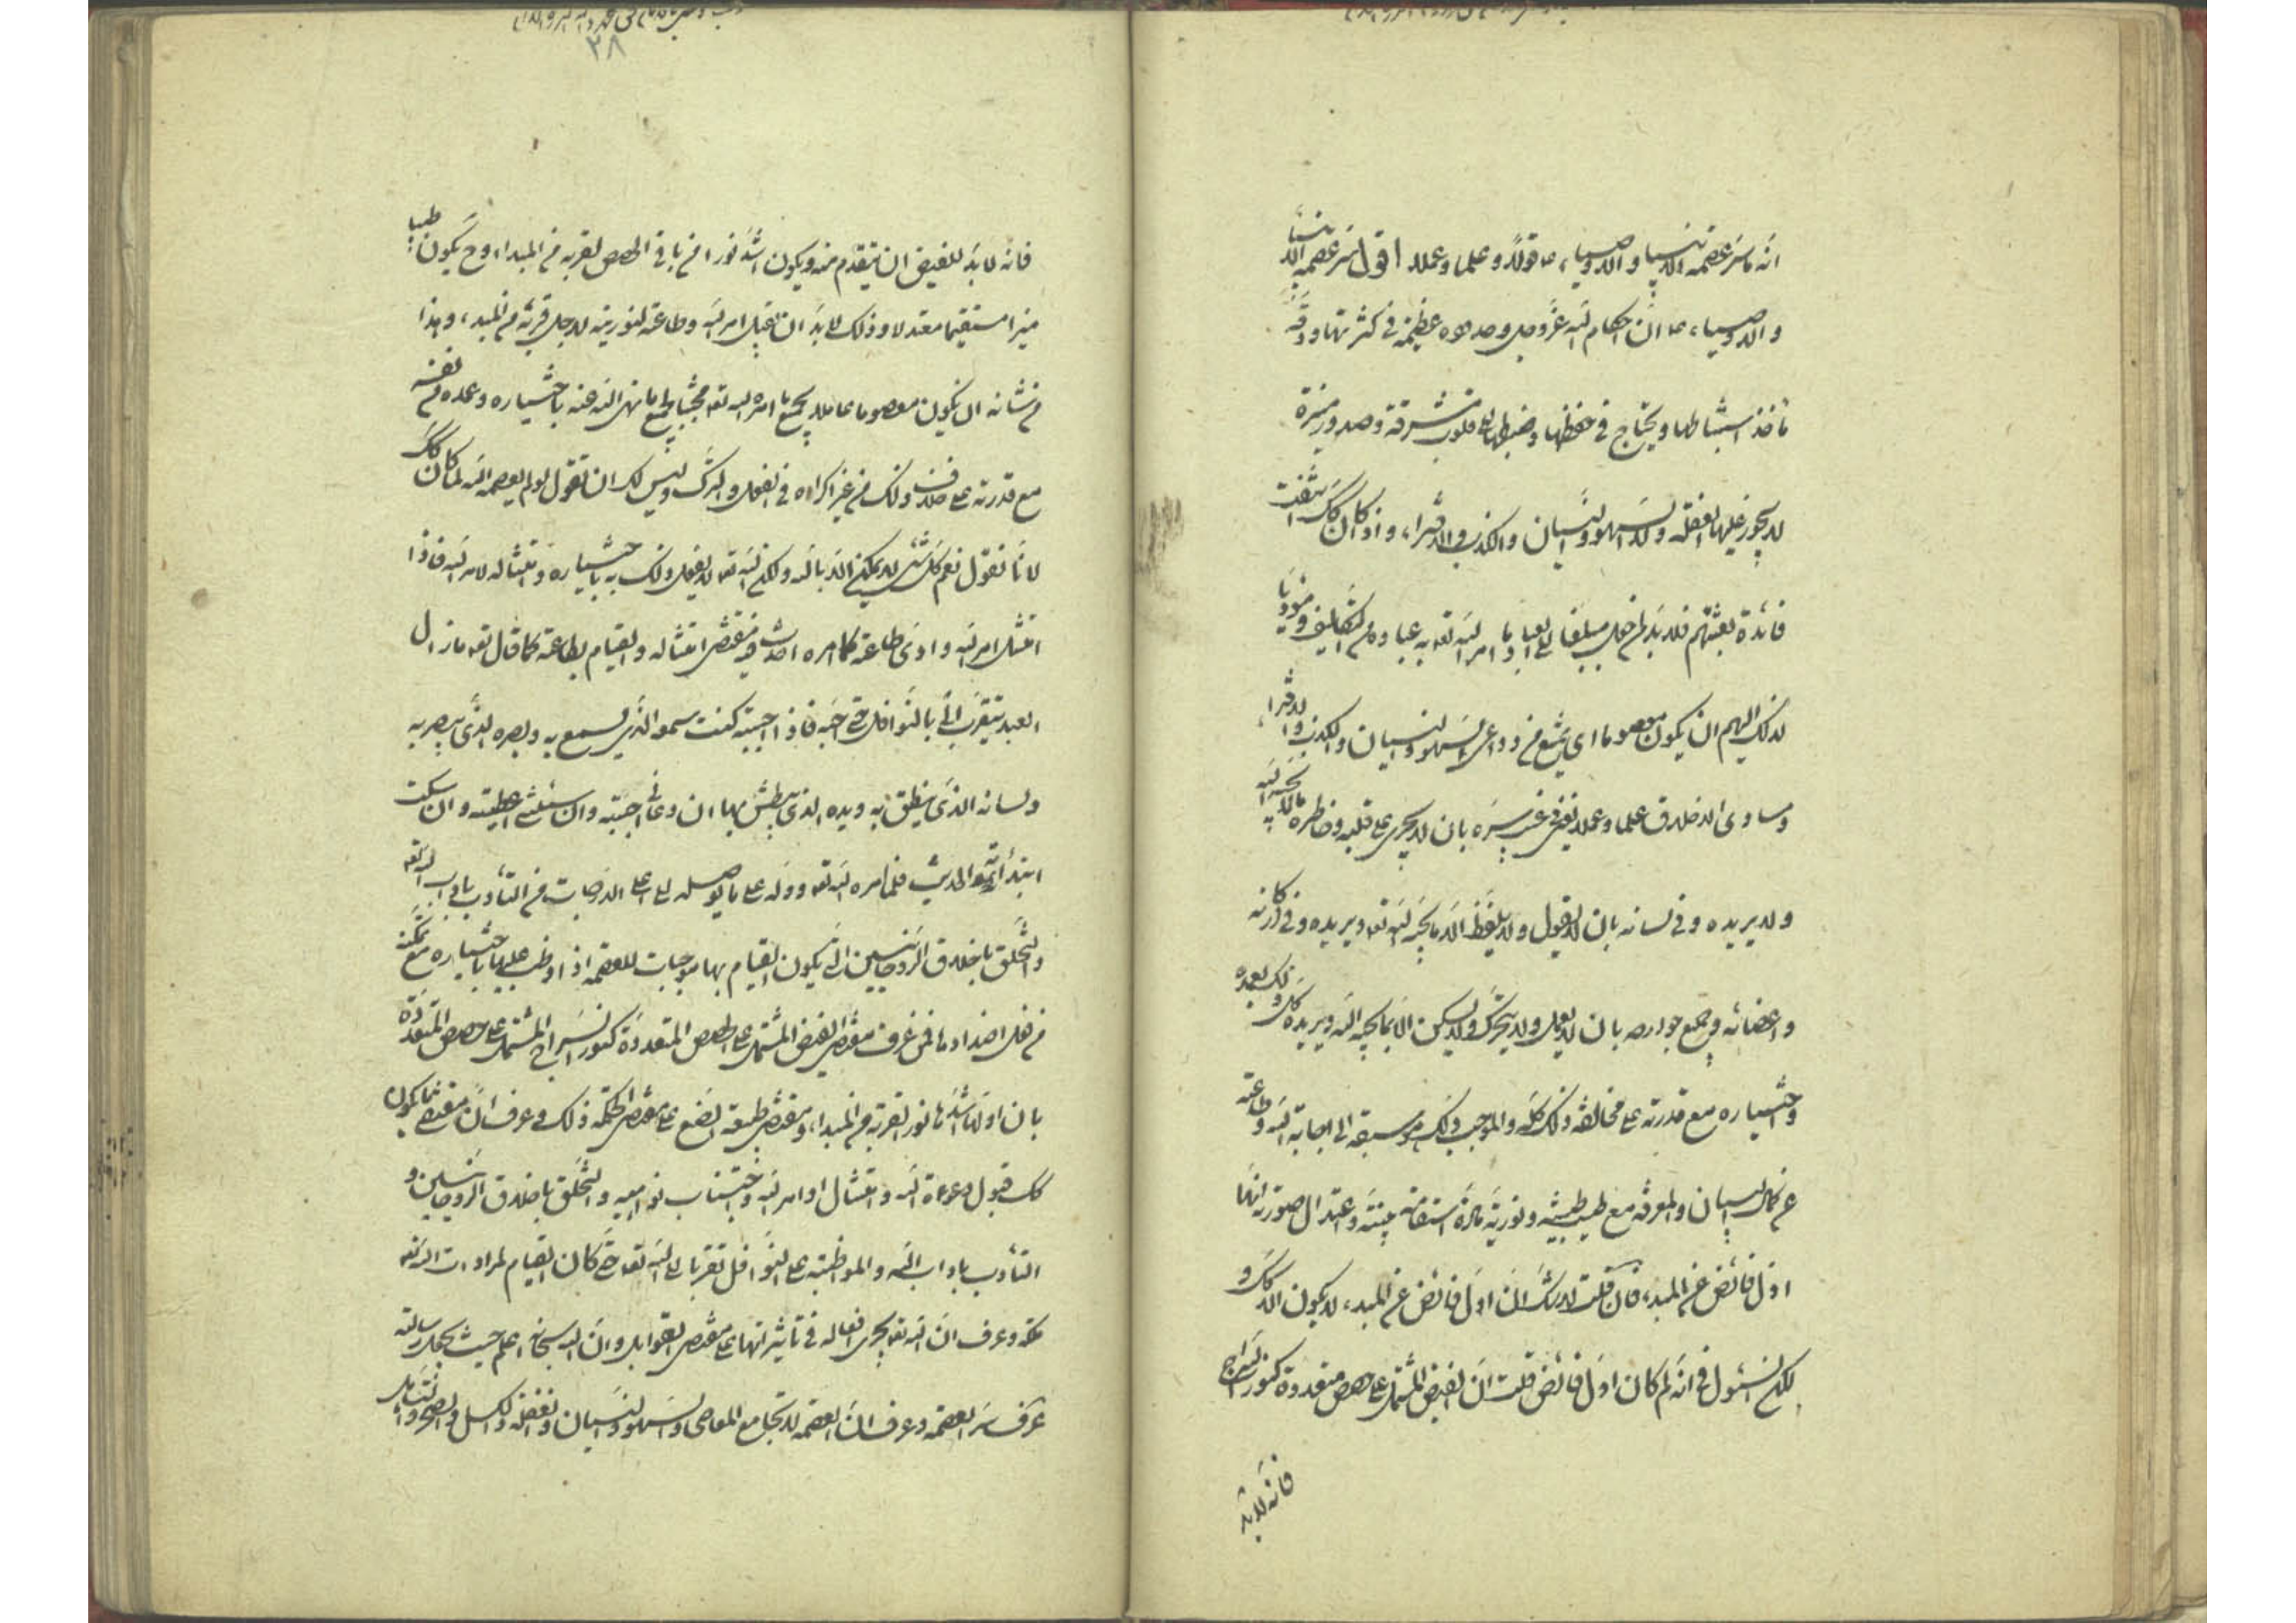 انه ما سر عصمه الانبيا والاوصياء ع قولا وعلما وعملا اقول سر عصمه الانبيا
والاوصياء ع ان احكام الله عز وجل وحدوده عظيمة في كثرتها ودقة
مأخذ استنباطها ويحتاج في حفظها وضبطها الى قلوب مشرقة وصدور منيرة
لا يجوز عليها الغفلة ولا السهو والنسيان والكذب والافتراء واذا كان كك انتفت
فائدة بعثتهم فلا بد لمن جعل مبلغا الى العباد ما امر الله تعه به عباده من التكاليف ومؤديا
لذلك اليهم ان يكون معصوما اى يمتنع من دواعى السهو والنسيان والكذب والافتراء
ومساوى الاخلاق علما وعملا يعنى في غيب سره بان لا يجرى على قلبه وخاطره ما لا يحبه الله
ولا يريده وفي لسانه بان لا يقول ولا يلفظ الا ما يحبه الله تعه ويريده وفي اركانه
واعضائه وجميع جوارحه بان لا يعمل ولا يتحرك ولا يسكن الا بما يحبه الله ويريده كل ذلك بعمده
واختياره مع قدرته على مخالفة ذلك كله والموجب لذلك هو سبقه الى اجابة الله وطاعته
عن كمال البيان والمعرفة مع طيب طينته ونورية مادة استقامة بنيته واعتدال صورته لانها
اول فائض عن المبدء فان قلت لا شك ان اول فائض عن المبدء لا يكون الا كك و
لكن السئول في انه لم كان اول فائض قلت ان الفيض المشتمل على حصص متعددة كنور السراج
فانه لا بد
٣٨
فانه لا بد للفيض ان يتقدم منه ويكون اشد نورا من باقى الحصص لقربه من المبداء وح يكون طيبا
منيرا مستقيما معتدلا وذلك لا بد ان يقبل امر الله وطاعته لنوريته لاجل قربه من المبدء وهذا
من شانه ان يكون معصوما عاملا بجميع ما امره الله تعه مجتنبا لجميع ما نهى الله عنه باختياره وعمده من نفسه
مع قدرته على خلاف ذلك من غير اكراه في الفعل والترك وليس لك ان تقول لو لم يعصمه الله لما كان كك
لانا نقول نعم كل شئ لا يمكن الا بالله ولكن الله تعه لا يفعل ذلك به باختياره وامتثاله لامر الله فاذا
امتثل امر الله وادى طاعته كما امره احدث فيه مقتضى امتثاله والقيام بطاعته كما قال تعه ما زال
العبد يتقرب الى بالنوافل حتى احبه فاذا احببته كنت سمعه الذى يسمع به وبصره الذى يبصر به
ولسانه الذى ينطق به ويده الذى يبطش بها ان دعانى اجبته وان سئلنى اعطيته وان سكت
ابتدأته الحديث فلما امره الله تعه ودله على ما يوصله الى اعلى الدرجات من التأدب باداب الله تعه
والتخلق باخلاق الروحانيين التى يكون القيام بها موجبات للعصمة اذا واظب عليها باختياره مع تمكنه
من فعل اضدادها فمن عرف مقتضى الفيض المشتمل على الحصص المتعددة كنور السراج المشتمل على حصص المتعددة
بان اولها اشدها نورا لقربه من المبداء ومقتضى طبيعة الصنع على مقتضى الحكمة ذلك وعرف ان مقتضى ما يكون
كك قبول دعوة الله وامتثال اوامر الله واجتناب نواهيه والتخلق باخلاق الروحانيين و
التأدب باداب الله والمواظبة على النوافل تقربا الى الله تعه حتى كان القيام لمرادات الله تعه
ملكة وعرف ان الله تعه يجرى افعاله في تأثيراتها على مقتضى القوابل وان الله سبحانه اعلم حيث يجعل رسالته
عرف سر العصمة وعرف ان العصمة لا تجامع المعاصى والسهو والنسيان والغفلة والكسل والضجر